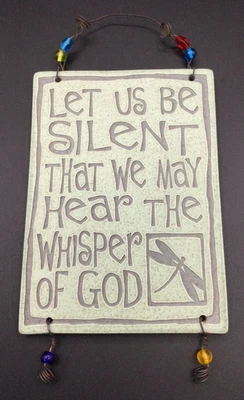 LET US BE
SILENT
THAT WE MAY
HEAR THE
WHISPER
OF GOD